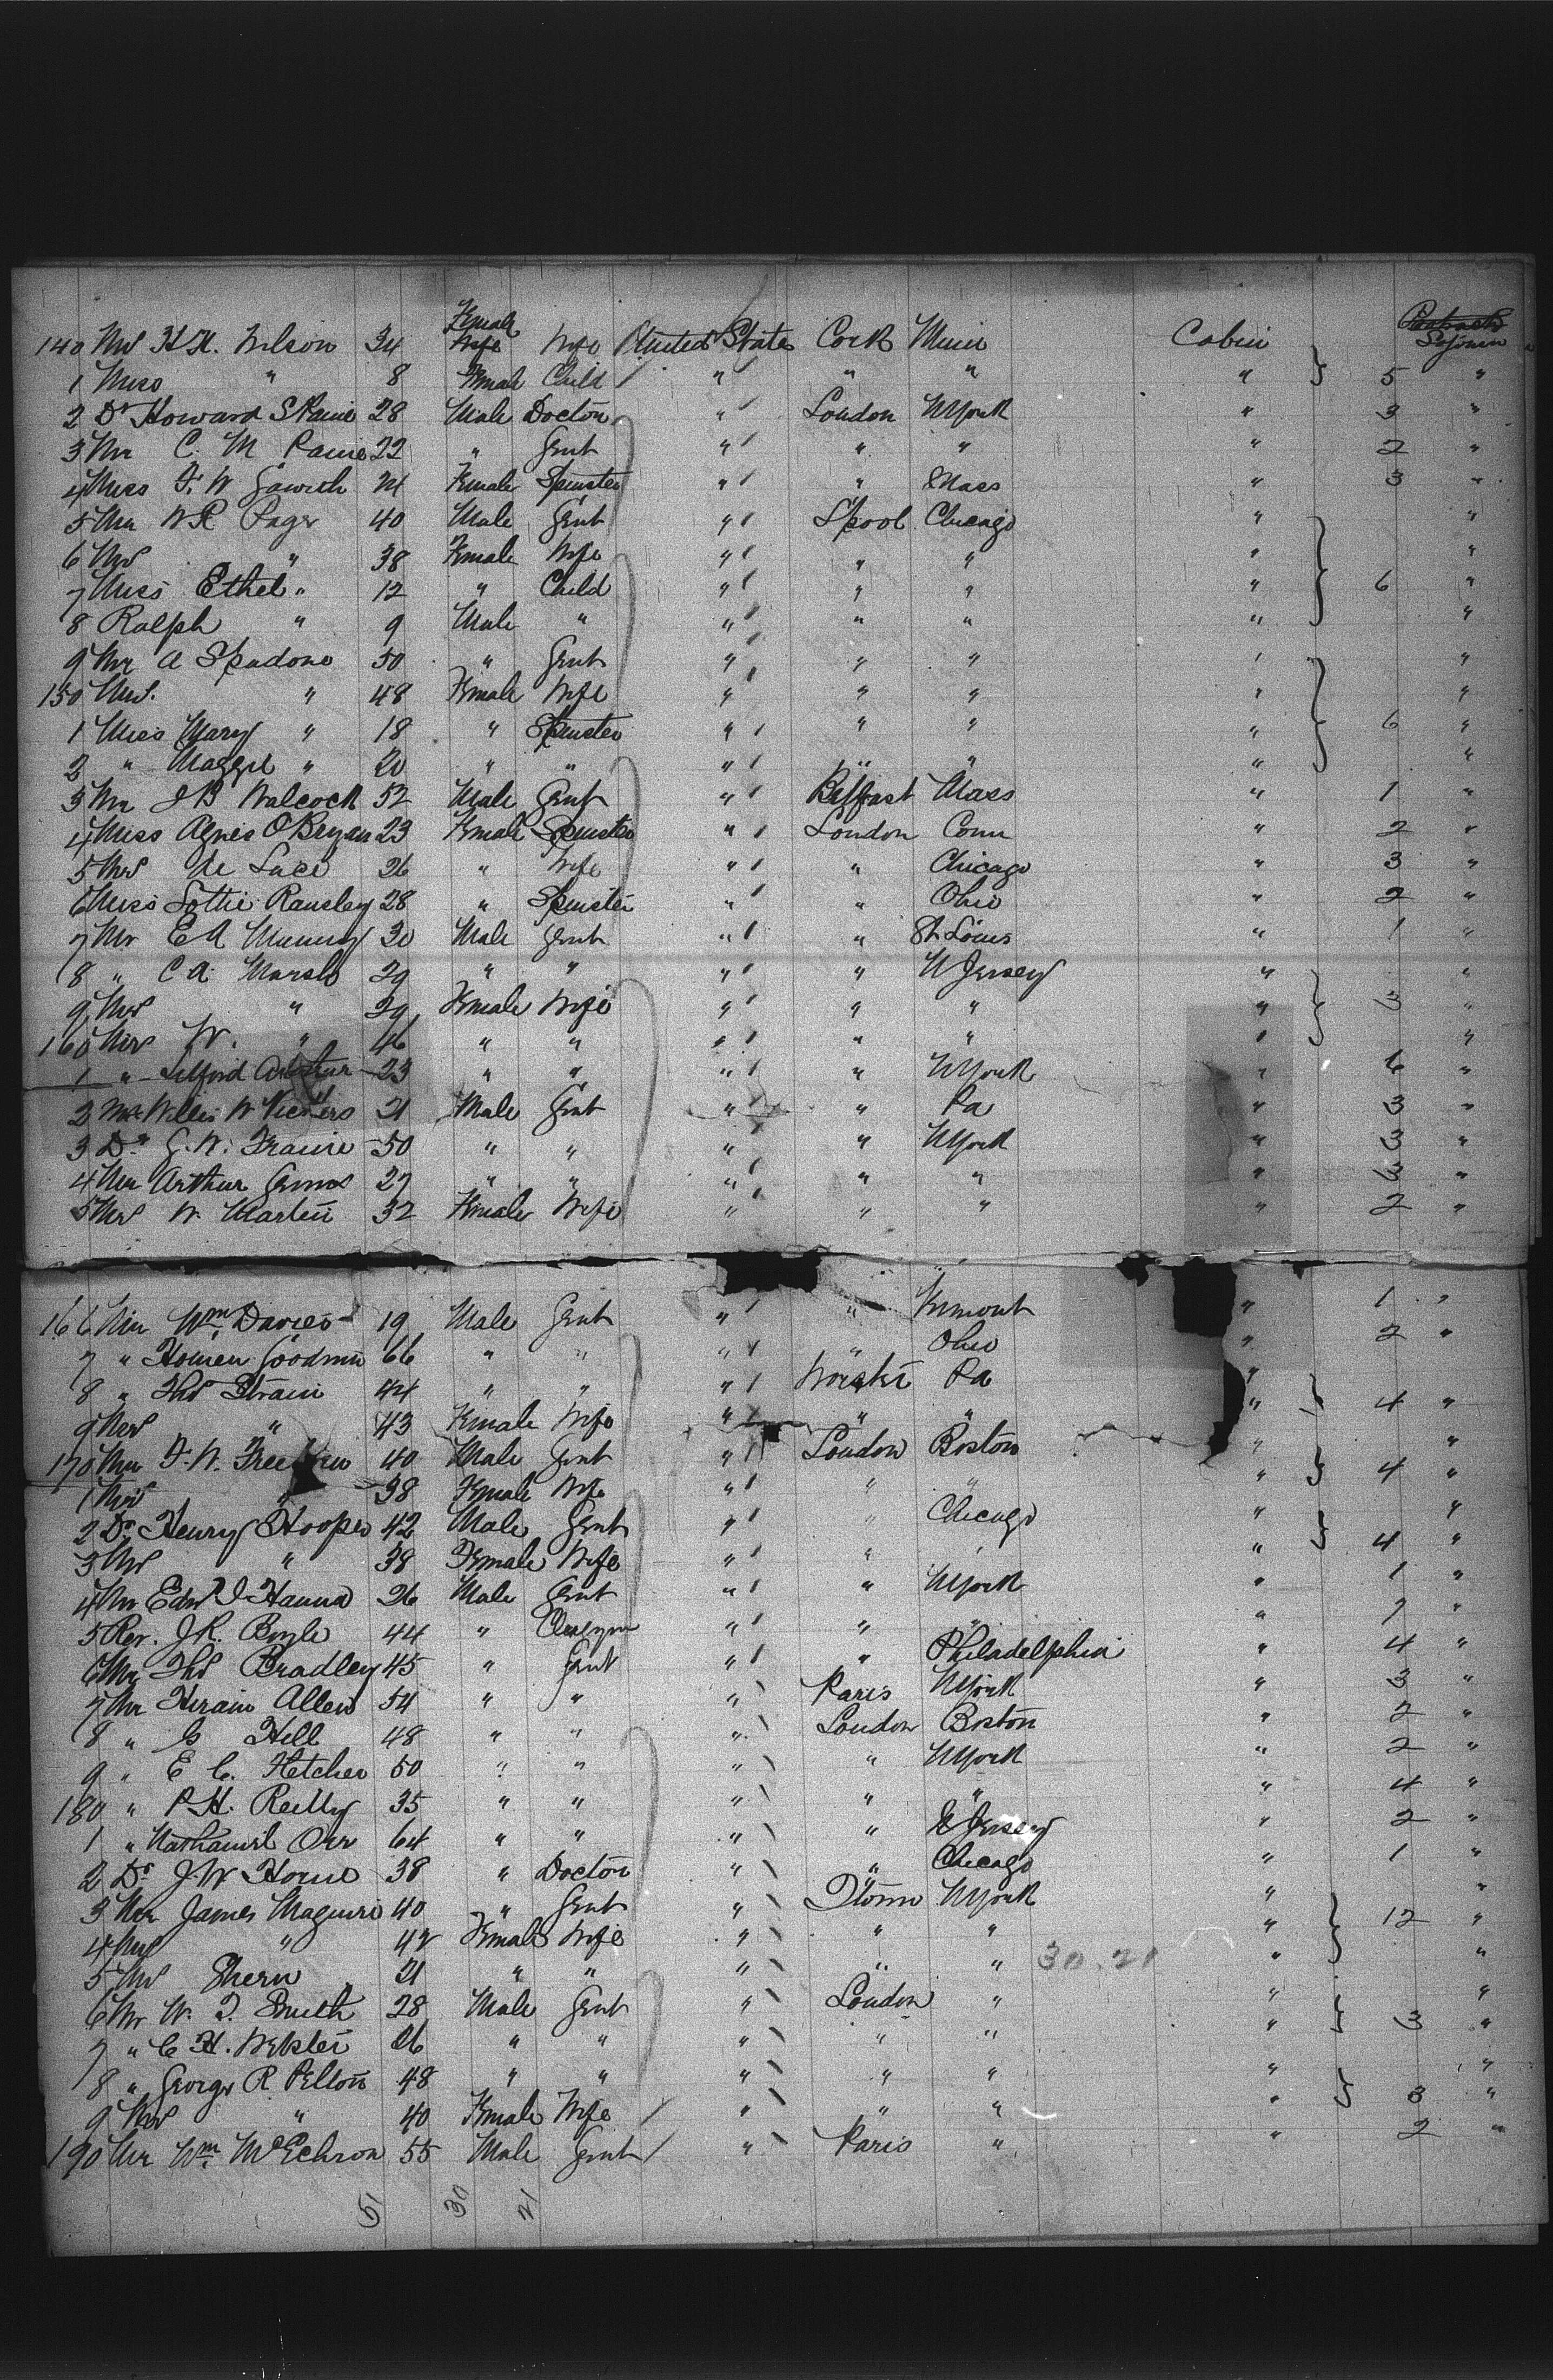 140 Mrs H. H. Wilson 34 Female Wife United States Cork Minn Cabin Sojourn
1 Miss " 8 Female Child " " " " 5 "
2 Dr Howard S Paine 28 Male Doctor " London NYork " 3 "
3 Mr C. M Paine 22 " Gent " " " " 2 "
4 Miss F. W 24 Female Spinster " " Mass " 3 "
5 Mr W R Page 40 Male Gent " Lpool Chicago " "
6 Mrs " 38 Female Wife " " " " "
7 Miss Ethel " 12 " Child " " " " 6 "
8 Ralph " 9 Male " " " " " "
9 Mr A Spadone 50 " Gent " " " " "
150 Mrs. " 48 Female Wife " " " " "
1 Miss Mary " 18 " Spinster " " " " 6 "
2 " Maggie " 20 " " " " " " "
3 Mr J B Walcock 52 Male Gent " Belfast Mass " 1 "
4 Miss Agnes O'Bryan 23 Female Spinster " London Conn " 2 "
5 Mrs de Luce 26 " Wife " " Chicago " 3 "
6 Miss Lottie Ransley 28 " Spinster " " Ohio " 2 "
7 Mr E A 30 Male Gent " " St Louis " 1 "
8 " C A. Marsh 29 " " " " N Jersey " "
9 Mrs " 29 Female Wife " " " " 3 "
160 Mrs W. " 46 " " " " " " "
1 " Telford 23 " " " " NYork " 6 "
2 Mr Willis W Vickers 21 Male Gent " " Pa " 3 "
3 Dr G. W. 50 " " " " NYork " 3 "
4 Mr Arthur 27 " " " " " " 3 "
5 Mrs W. Martin 32 Female Wife " " " " 2 "
166 Mr Wm. Davies 19 Male Gent " " Vermont " 1 "
7 " Homer Goodwin 66 " " " " Ohio " 2 "
8 " Thos Strain 44 " " " Pa "
9 Mrs " 43 Female Wife " " " " 4 "
170 Mr F. W. 40 Male Gent " London Boston " "
1 Mrs " 38 Female Wife " " " " 4 "
2 Dr Henry Hooper 42 Male Gent " " Chicago " "
3 Mrs " 38 Female Wife " " " " 4 "
4 Mr Edw J Hanna 26 Male Gent " " NYork " 1 "
5 Rev. J. R. Boyle 44 " Clergym " " " " 7 "
6 Mr Thos Bradley 45 " Gent " " Philadelphia " 4 "
7 Mr Hiram Allen 54 " " " Paris NYork " 3 "
8 " G Hill 48 " " " London Boston " 2 "
9 " E C. Fletcher 50 " " " " NYork " 2 "
180 " P. H. Reilly 35 " " " " " " 4 "
1 " Nathaniel Orr 64 " " " " N Jersey " 2 "
2 Dr J. W Horne 38 " Doctor " " Chicago " 1 "
3 Mr James Maguire 40 " Gent " Qtown NYork " "
4 Mrs " 42 Female Wife " " " " 12 "
5 Mrs 21 " " " " " 30.21 " "
6 Mr W. T. Smith 28 Male Gent " London " " "
7 " C. H. Webster 26 " " " " " " 3 "
8 " George R Pelton 48 " " " " " " "
9 Mrs " 40 Female Wife " " " " 3 "
190 Mr Wm. McEchron 55 Male Gent " Paris " " 2 "
51 30 21